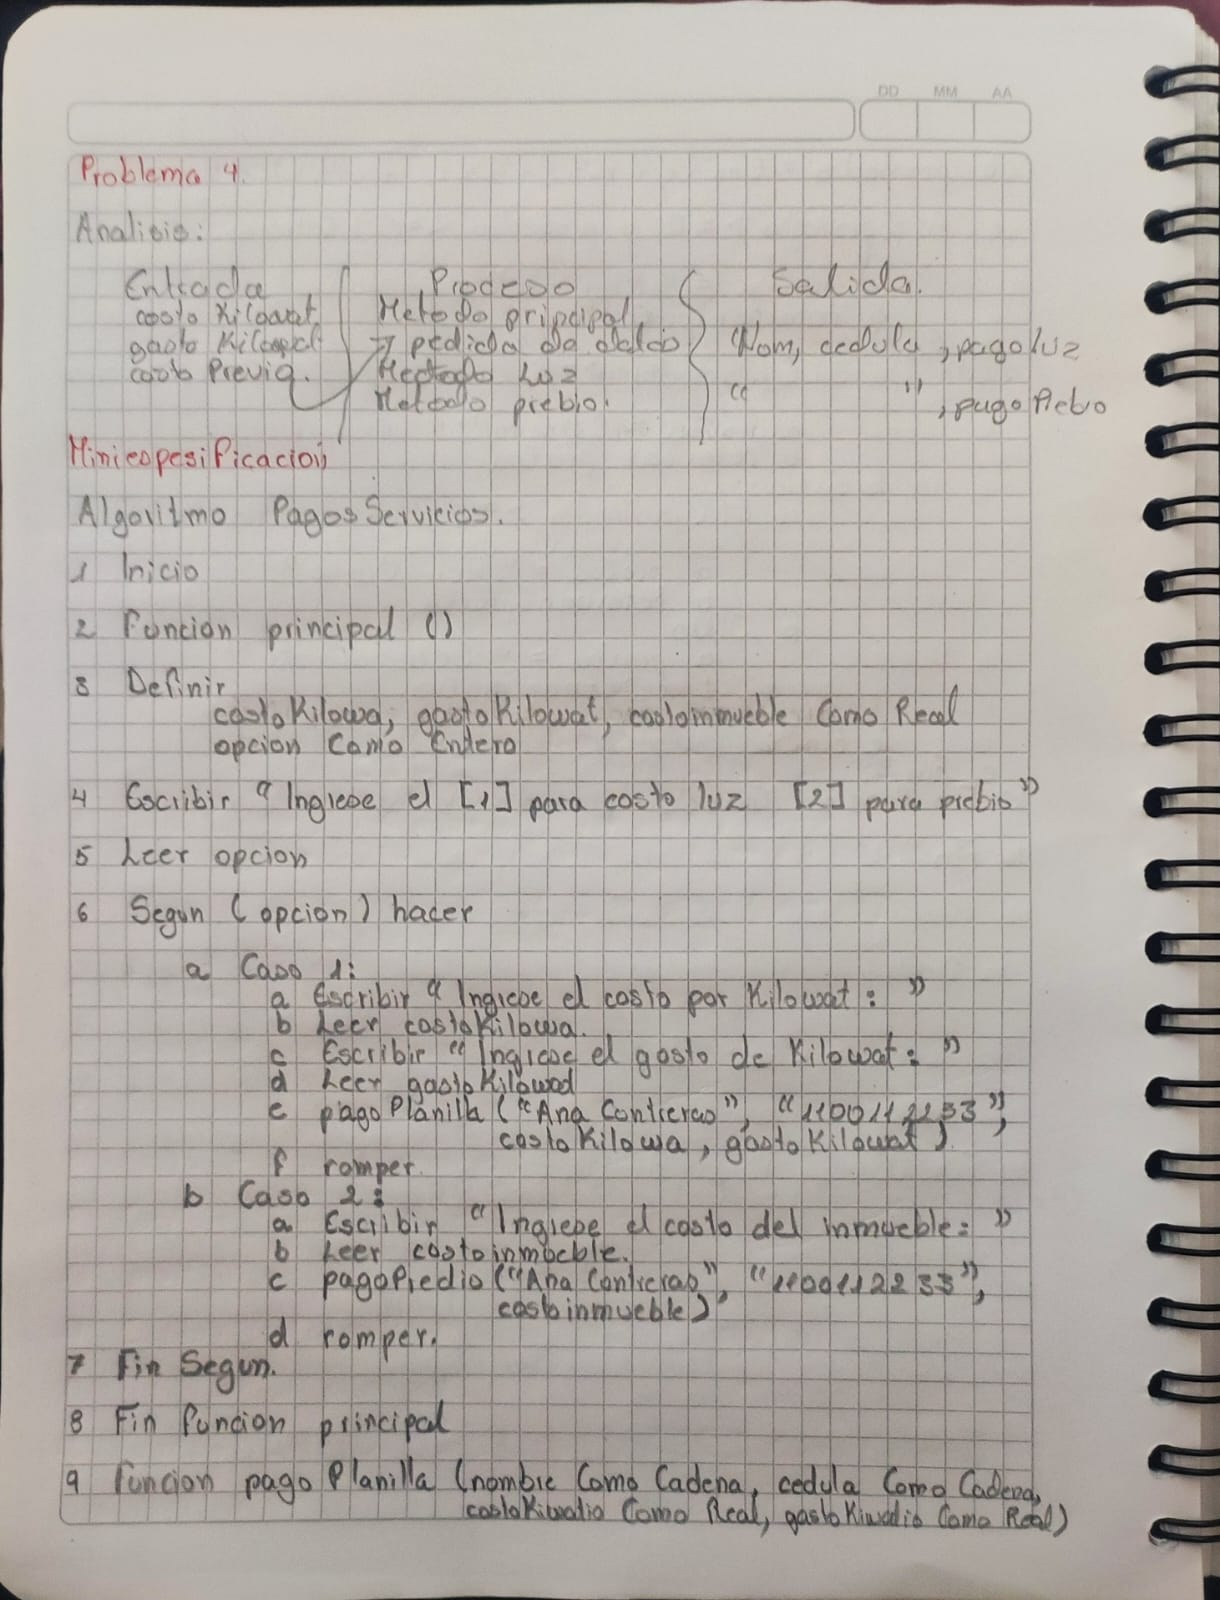 DD MM AA
Problema 4.
Analisis:
Entrada Proceso Salida.
costo Kilowat Metodo principal
gasto Kilowat → pedida de datos Nom, cedula, pagoluz
costo Previo. Metodo Luz
Metodo prebio. " ", pago Prebio
Miniespesificacion
Algoritmo PagosServicios.
1 Inicio
2 Funcion principal ()
3 Definir
costoKilowa, gastoKilowat, costoinmueble Como Real
opcion Como Entero
4 Escribir "Ingrese el [1] para costo luz [2] para prebio"
5 Leer opcion
6 Segun (opcion) hacer
a Caso 1:
a Escribir "Ingrese el costo por Kilowat: "
b Leer costoKilowa.
c Escribir "Ingrese el gasto de Kilowat: "
d Leer gastoKilowad
e pagoPlanilla ("Ana Contreras", "1100112233",
costoKilowa, gastoKilowat)
f romper.
b Caso 2:
a Escribir "Ingrese el costo del inmueble: "
b Leer costoinmueble.
c pagoPredio ("Ana Contreras", "1100112233",
costoinmueble)
d romper.
7 Fin Segun.
8 Fin funcion principal
9 funcion pagoPlanilla (nombre Como Cadena, cedula Como Cadena,
Como Real, Como Real)